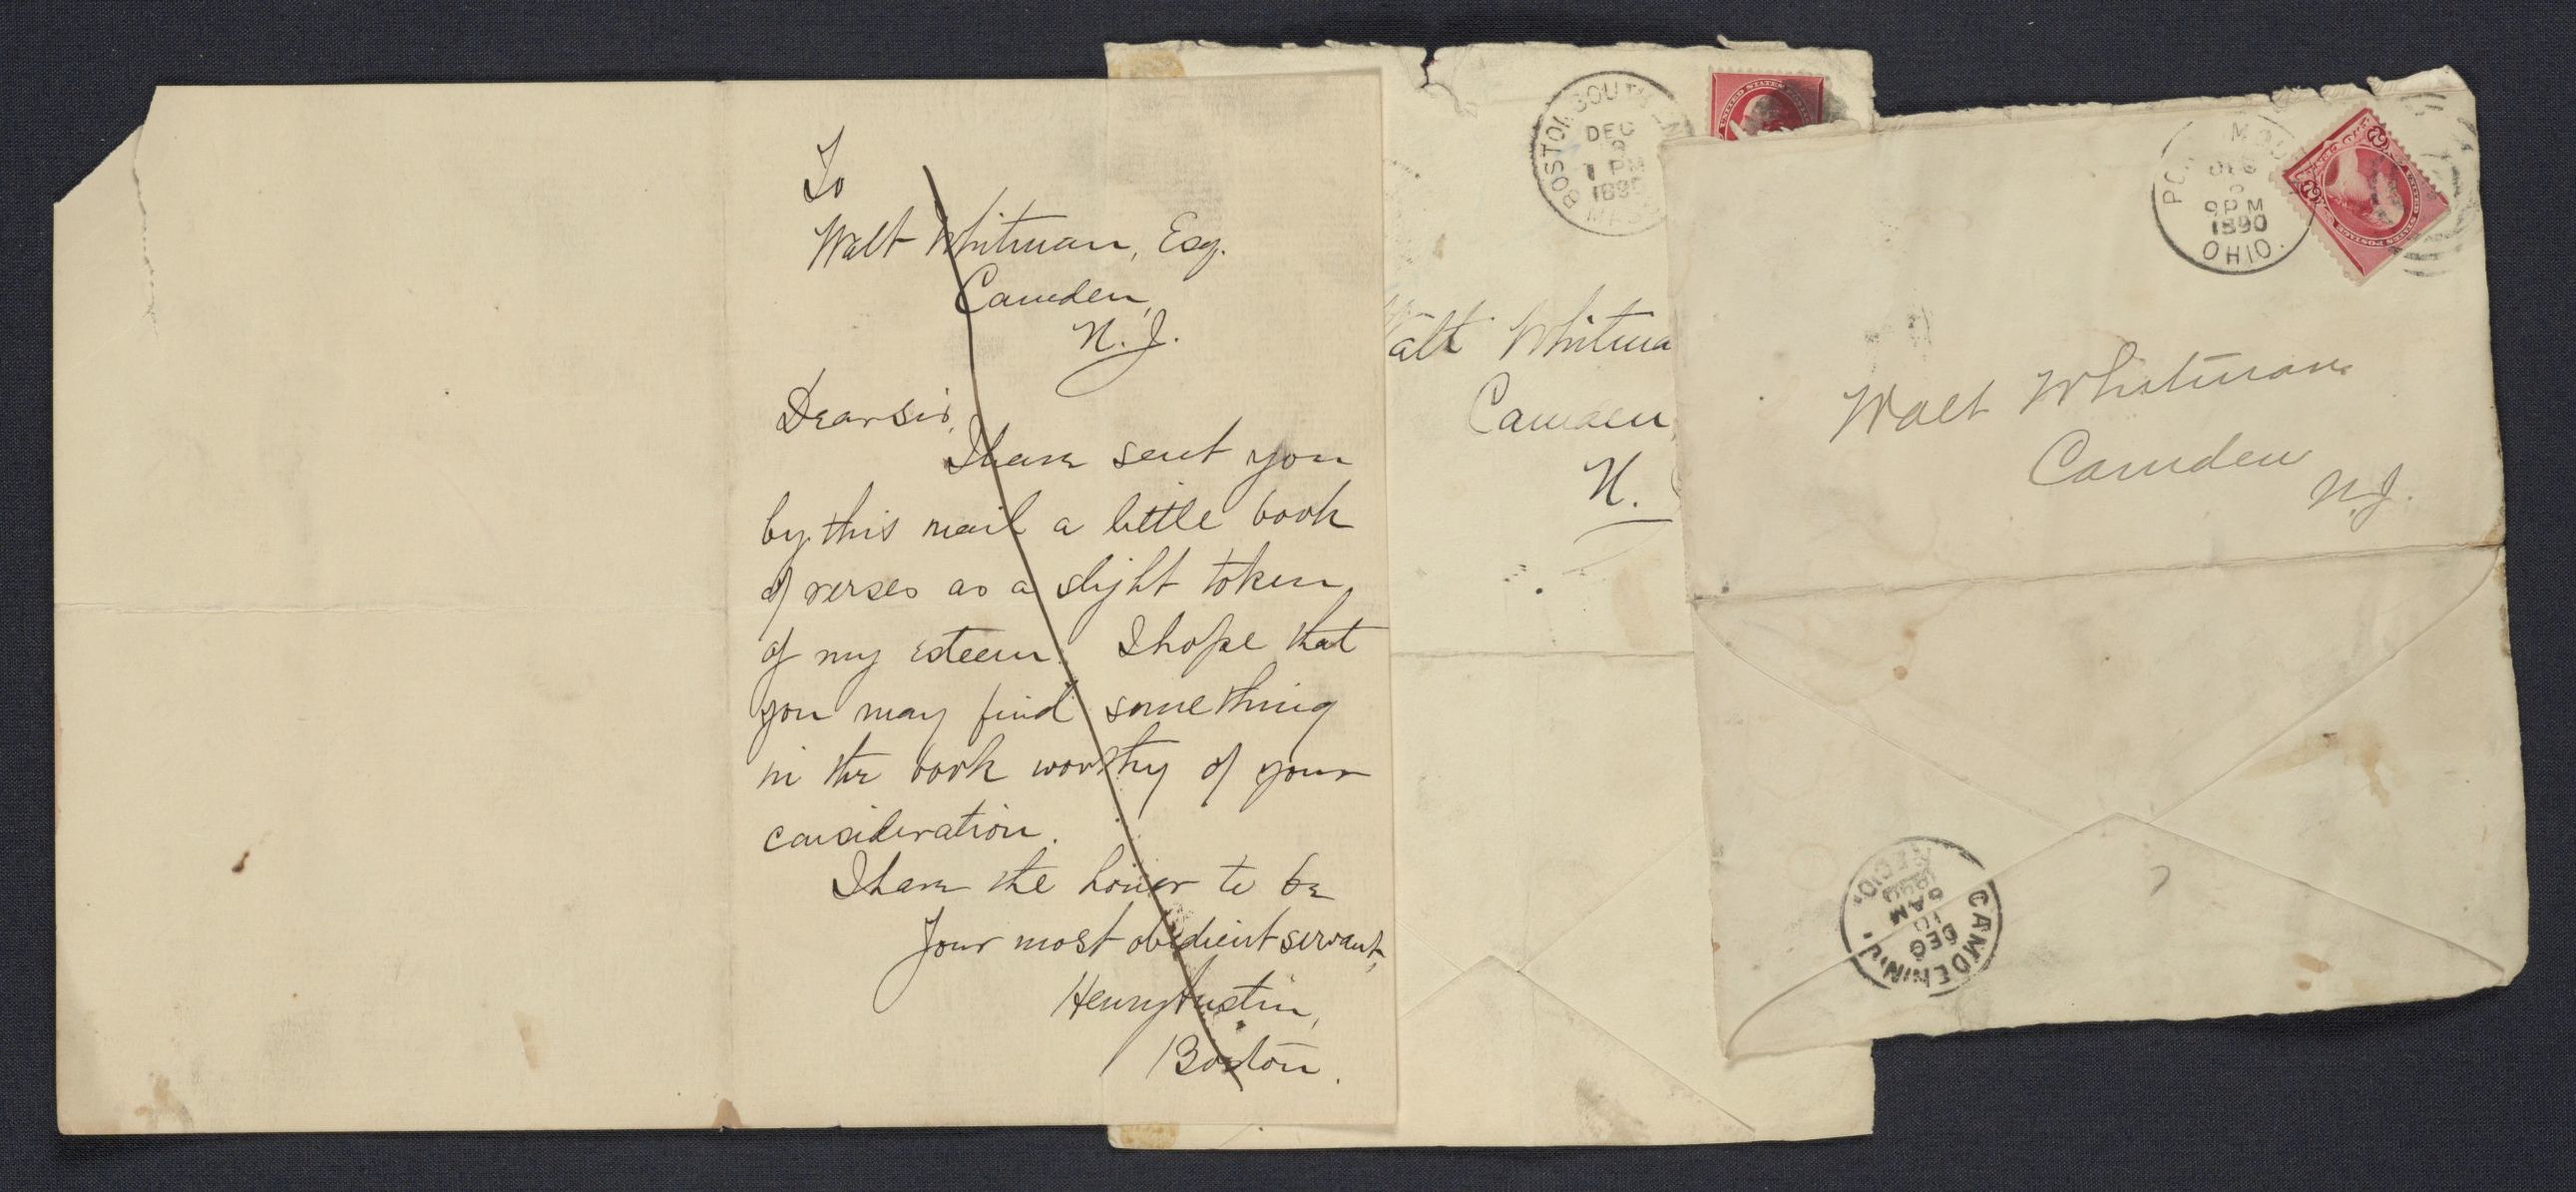 To
Walt Whitman, Esq.
Camden,
N. J.
Dear sir,
I have sent you
by this mail a little book
of verses as a slight token
of my esteem. I hope that
you may find something
in the book worthy of your
consideration.
I have the honor to be
Your most obedient servant,
Henry Austin,
Boston.
BOSTON
MASS
DEC
9
1 PM
1890
Walt Whitma
Camden,
N.
9 PM
1890
OHIO.
Walt Whitman
Camden
N.J.
CAMDEN, N.J.
DEC
10
6 AM
1890
REC'D.